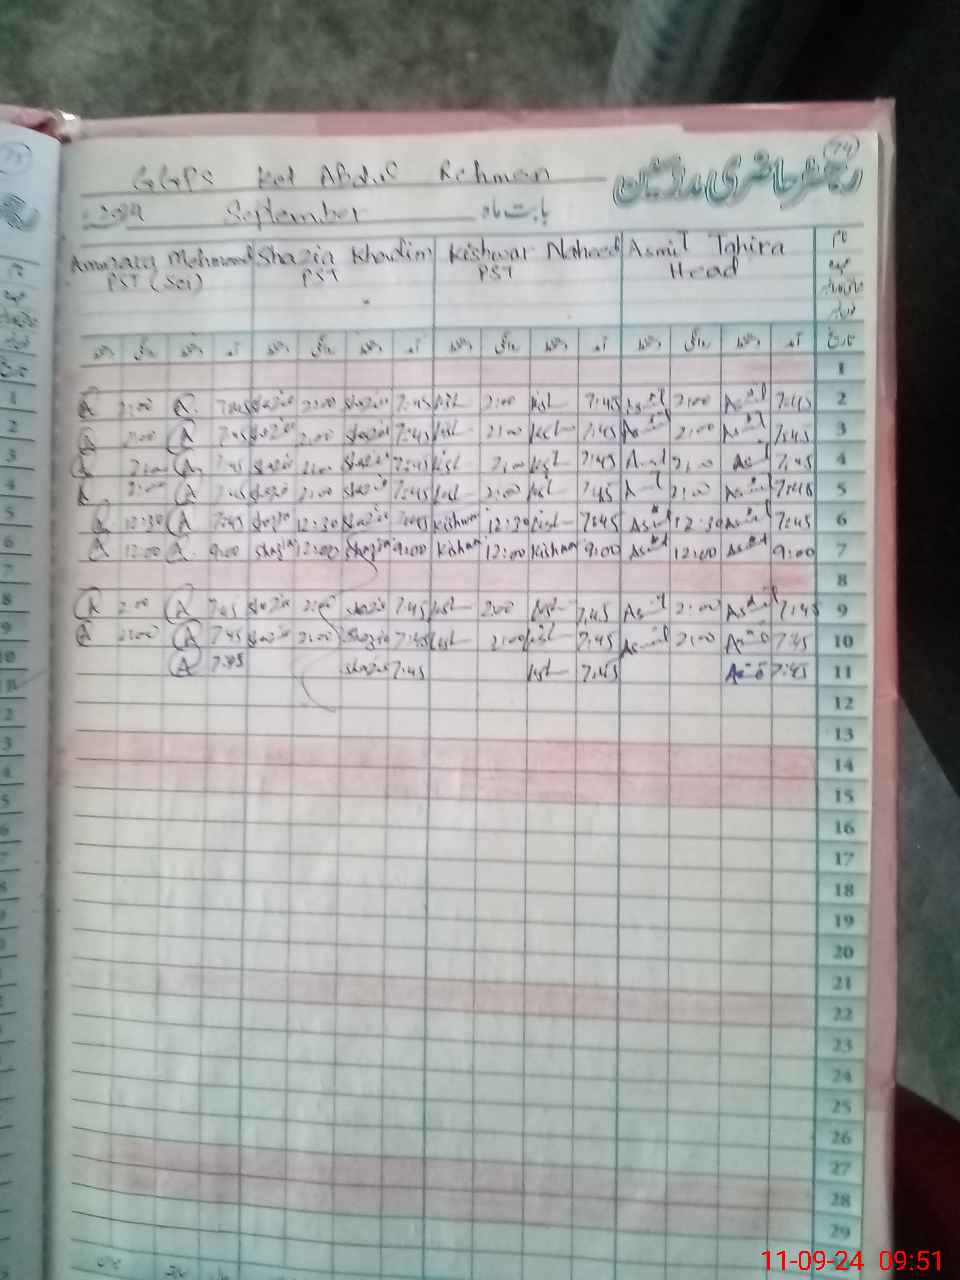 74
رجسٹر حاضری مدرسین
GGPS Kot Abdul Rehman
بابت ماہ September 2024
Shazia Khadim Kishwar Naheed Asmit Tahira
PST (Sci) PST PST Head
نام
عہدہ
تاریخ آمد دستخط روانگی دستخط آمد دستخط روانگی دستخط آمد دستخط روانگی دستخط آمد دستخط روانگی دستخط
1
A 2:00 A. 7:45 Shazia 2:00 Shazia 7:45 Kish 2:00 Kish 7:45 Asmit 2:00 Asmit 7:45 2
A 2:00 A 7:45 Shazia 2:00 Shazia 7:45 Kish 2:00 Kish 7:45 Asmit 2:00 Asmit 7:45 3
A 2:00 A. 7:45 Shazia 2:00 Shazia 7:45 Kish 2:00 Kish 7:45 Asmit 2:00 Asmit 7:45 4
A. 2:00 A 7:45 Shazia 2:00 Shazia 7:45 Kish 2:00 Kish 7:45 Asmit 2:00 Asmit 7:45 5
A 12:30 A 7:45 Shazia 12:30 Shazia 7:45 Kishwar 12:30 Kish 7:45 Asmit 12:30 Asmit 7:45 6
A 12:00 A. 9:00 Shazia 12:00 Shazia 9:00 Kishwar 12:00 Kishwar 9:00 Asmit 12:00 Asmit 9:00 7
8
A 2:00 A 7:45 Shazia 2:00 Shazia 7:45 Kish 2:00 Kish 7:45 Asmit 2:00 Asmit 7:45 9
A 2:00 A 7:45 Shazia 2:00 Shazia 7:45 Kish 2:00 Kish 7:45 Asmit 2:00 Asmit 7:45 10
A 7:45 Shazia 7:45 Kish 7:45 Asmit 7:45 11
12
13
14
15
16
17
18
19
20
21
22
23
24
25
26
27
28
29
11-09-24 09:51